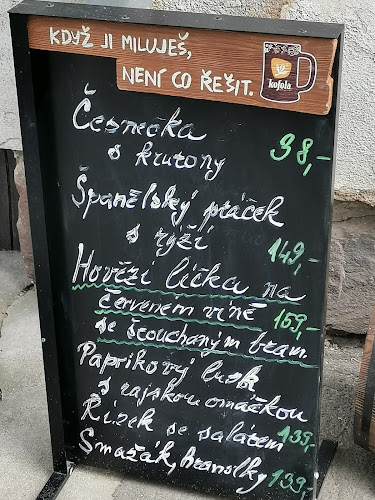 KDYŽ JI MILUJEŠ,
NENÍ CO ŘEŠIT.
kofola
Česnečka
s krutony 38,-
Španělský ptáček
s rýží 149,-
Hovězí líčka na
červeném víně 159,-
se šťouchaným bram.
Paprikový lusk
s rajskou omáčkou
Řízek se salátem 139,-
Smažák, hranolky 139,-